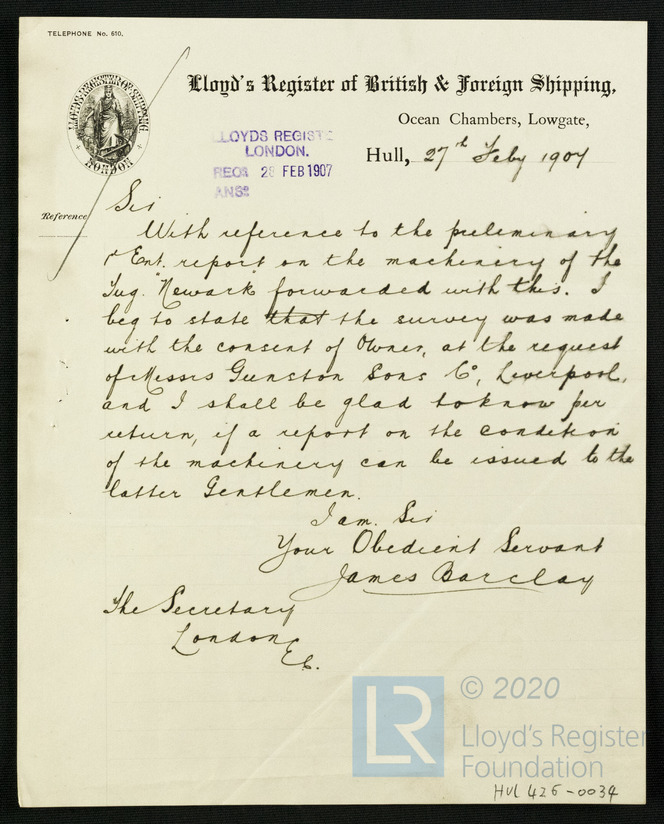 TELEPHONE No. 610.
LLOYD'S REGISTER OF SHIPPING
LONDON
Lloyd's Register of British & Foreign Shipping,
Ocean Chambers, Lowgate,
LLOYDS REGISTE
LONDON.
RECD 28 FEB 1907
ANSD
Hull, 27th Feby 1907
Reference
Sir
With reference to the preliminary
& Ent. report on the machinery of the
Tug. "Newark" forwarded with this. I
beg to state that the survey was made
with the consent of Owner, at the request
of Messrs Gunston Sons Co, Liverpool,
and I shall be glad to know per
return, if a report on the condition
of the machinery can be issued to the
latter Gentlemen.
I am. Sir
Your Obedient Servant
James Barclay
The Secretary
London
E.C.
LR © 2020
Lloyd's Register
Foundation
HUL 426-0034